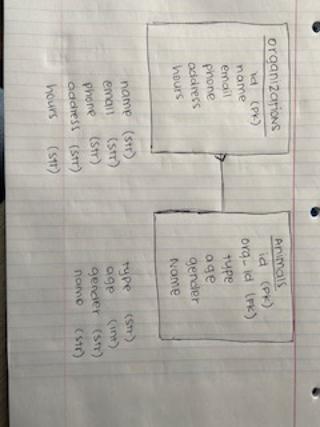 organizations
id (PK)
name
email
phone
address
hours
name (str)
email (str)
phone (str)
address (str)
hours (str)
Animals
id (PK)
org-id (PK)
type
age
gender
Name
type (str)
age (int)
gender (str)
name (str)